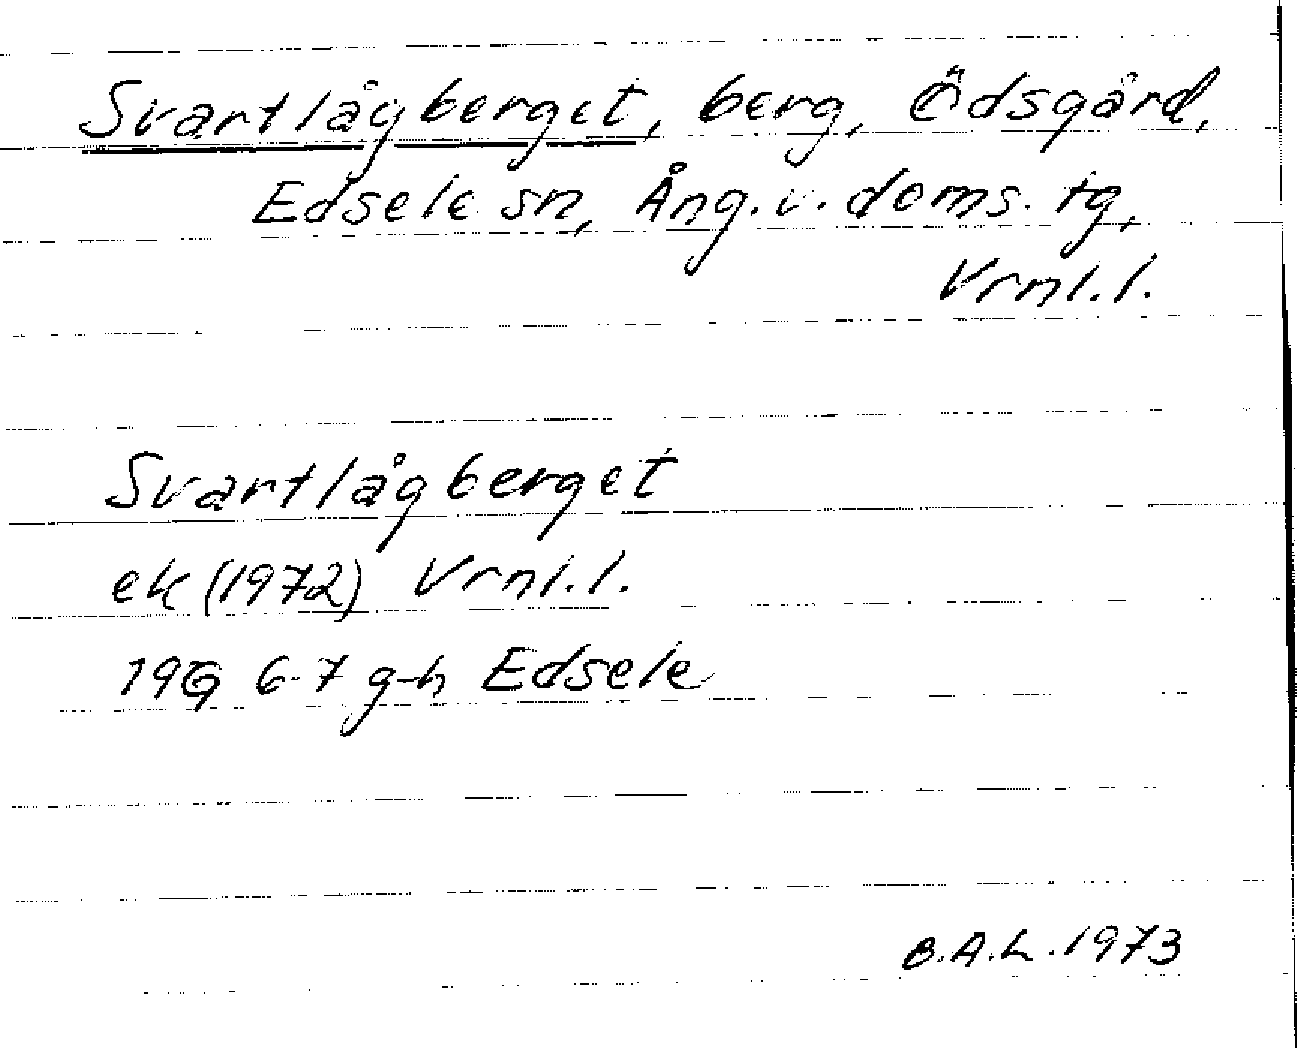 Svartlågberget, berg, Ödsgård,
Edsele sn, Ång.v. doms. tg,
Vrnl.l.
Svartlågberget
ek (1972) Vrnl.l.
19G 6-7 g-h Edsele
B.A.L. 1973